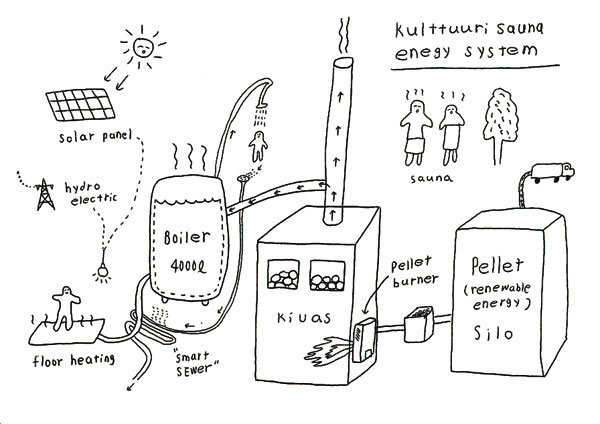 Kulttuuri sauna
enegy system
solar panel
sauna
hydro
electric
Boiler
4000ℓ
Pellet
burner
Pellet
(renewable
energy)
Silo
Kiuas
floor heating
"smart
SEWER"